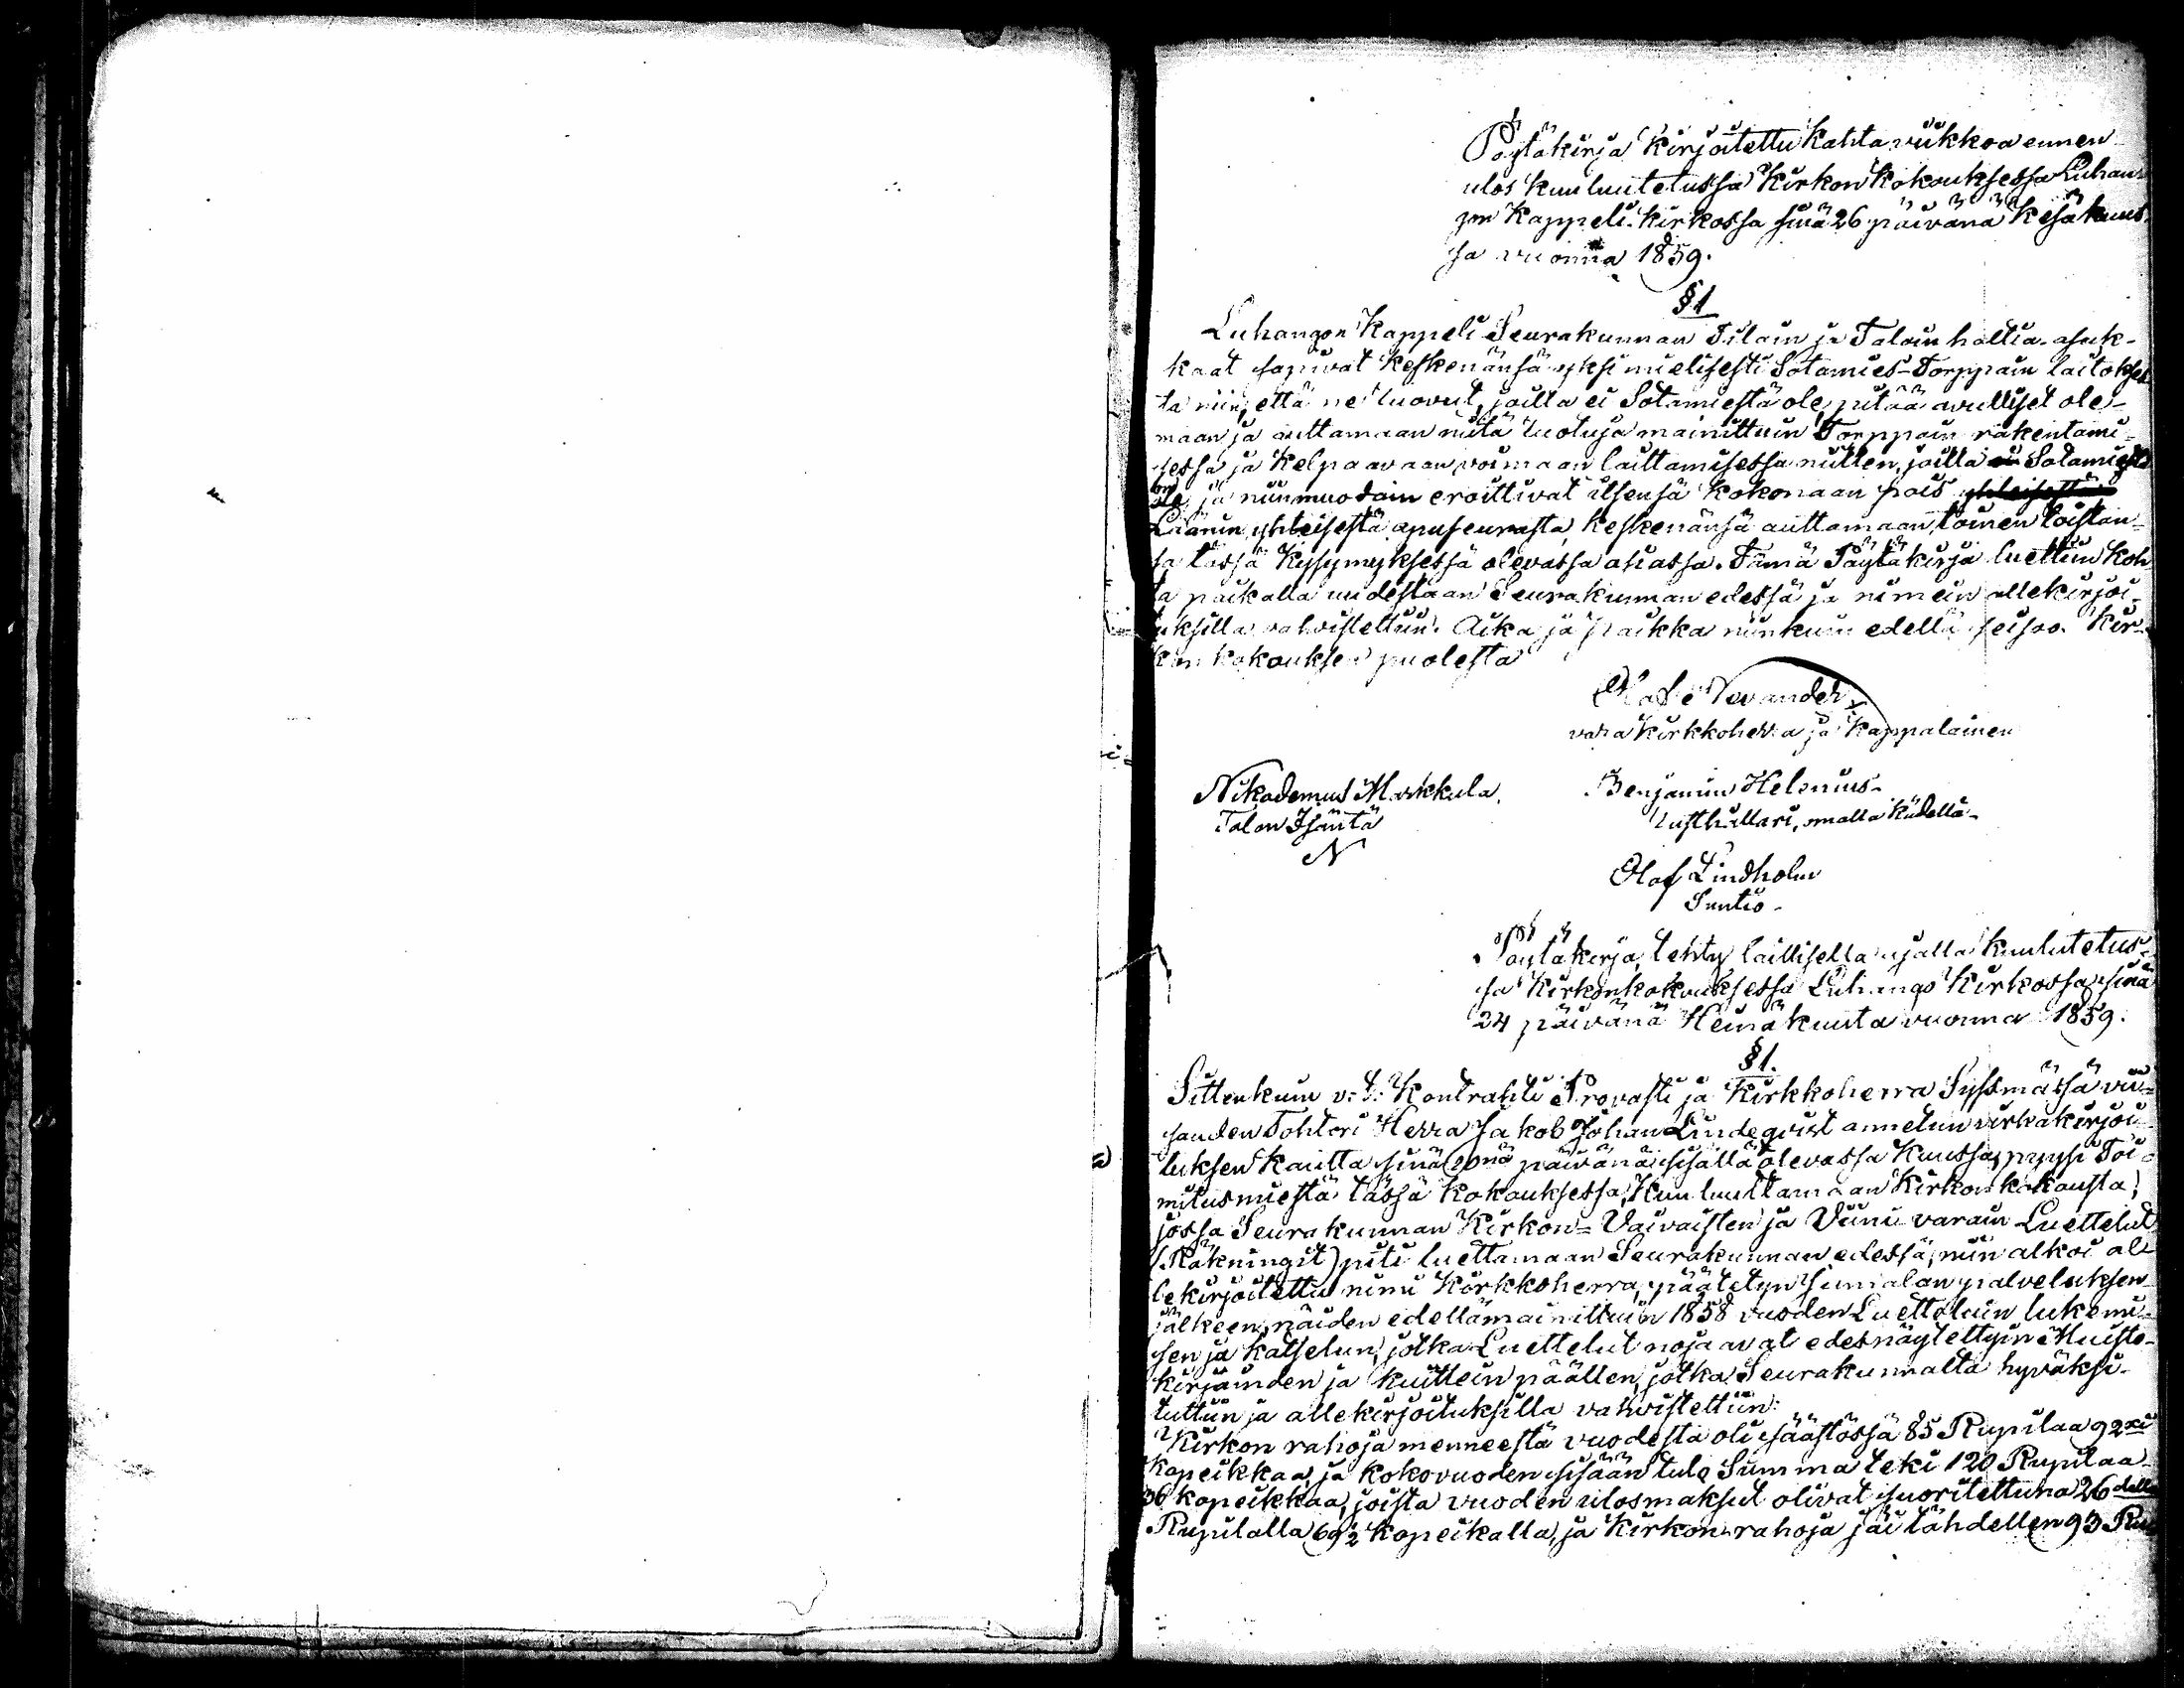 Pöytäkirja kirjoitettu kahta viikkoa ennen
ulos kuulutetussa Kirkon kokouksessa Luhan-
gon Kappeli-kirkossa sinä 26 päivänä Kesäkuus-
sa vuonna 1859.
§ 1
Luhangon Kappeli Seurakunnan Tilain ja Taloin haltia-asuk-
kaat sopiivat keskenänsä yksimielisesti Sotamies-Torppain laitokses
ta niin, että ne Ruovut, joilla ei Sotamiestä ole, pitää avulliset ole-
maan ja auttamaan niitä Ruotuja mainittuin Torppain rakentami-
sessa ja kelpaavaan voimaan laittamisessa niitten, joilla ei Sotamiestä
on
ole, ja niinmuodoin eroittivat itsensä kokonaan pois yhteisestä
Läänin yhteisestä apuseurasta, keskenänsä auttamaan toinen toistan-
sa tässä kysymyksessä olevassa asiassa. Tämä Pöytäkirja luettiin koh
ta paikalla uudestaan Seurakunnan edessä ja nimein allekirjoi-
tuksilla vahvistettiin. Aika ja paikka niinkuin edellä seisoo. Kir-
kon kokouksen puolesta
Nevander
vara Kirkkoherra ja Kappalainen
Nikodemus Markkula. Benjamin Helenius-
Talon Isäntä Lusthållari, omalla kädellä-
N
Olof Lindholm
Suntio-
Pöytäkirja, tehty laillisella ajalla kuulutetus-
sa Kirkonkokouksessa Luhango Kirkossa sinä
24 päivänä Heinäkuuta vuonna 1859.
§ 1.
Sittenkuin v. t. Kontrahti Provasti ja Kirkkoherra Sysmässä vii-
sauden Tohtori Herra Jakob Johan Lindeqvist annetun virkakirjoi-
tuksen kautta sinä päivänä sisällä olevassa Kuussa, pyysi Toi-
mitusmiestä tässä kokouksessa, Kuuluuttamaan Kirkon kokousta,
jossa Seurakunnan Kirkon- Vaivaisten ja Viini-varain Luettelut
(Räkningit) piti luettamaan Seurakunnan edessä; niin alkoi al-
lekirjoitettu nimi Kirkkoherra, päätetyn Jumalan palveluksen
jälkeen, näiden edellämainittuin 1858 vuoden Luetteluin lukemi-
sen ja katselun, jotka Luettelut nojaavat edesnäytettyin Muisto-
kirjainden ja kuittein päällen, jotka Seurakunnalta hyväksi-
tuttiin ja allekirjoituksilla vahvistettiin:
Kirkon rahoja menneestä vuodesta oli säästössä 85 Rupilaa 92
kopeikkaa, ja kokovuoden sisääntulo Summa teki 120 Rupilaa
36 kopeikkaa, joista vuoden ulosmaksut olivat suoritettuna 26 della
Rupilalla 69½ kopeikalla, ja Kirkon rahoja jäi tähdellen 93 Ru